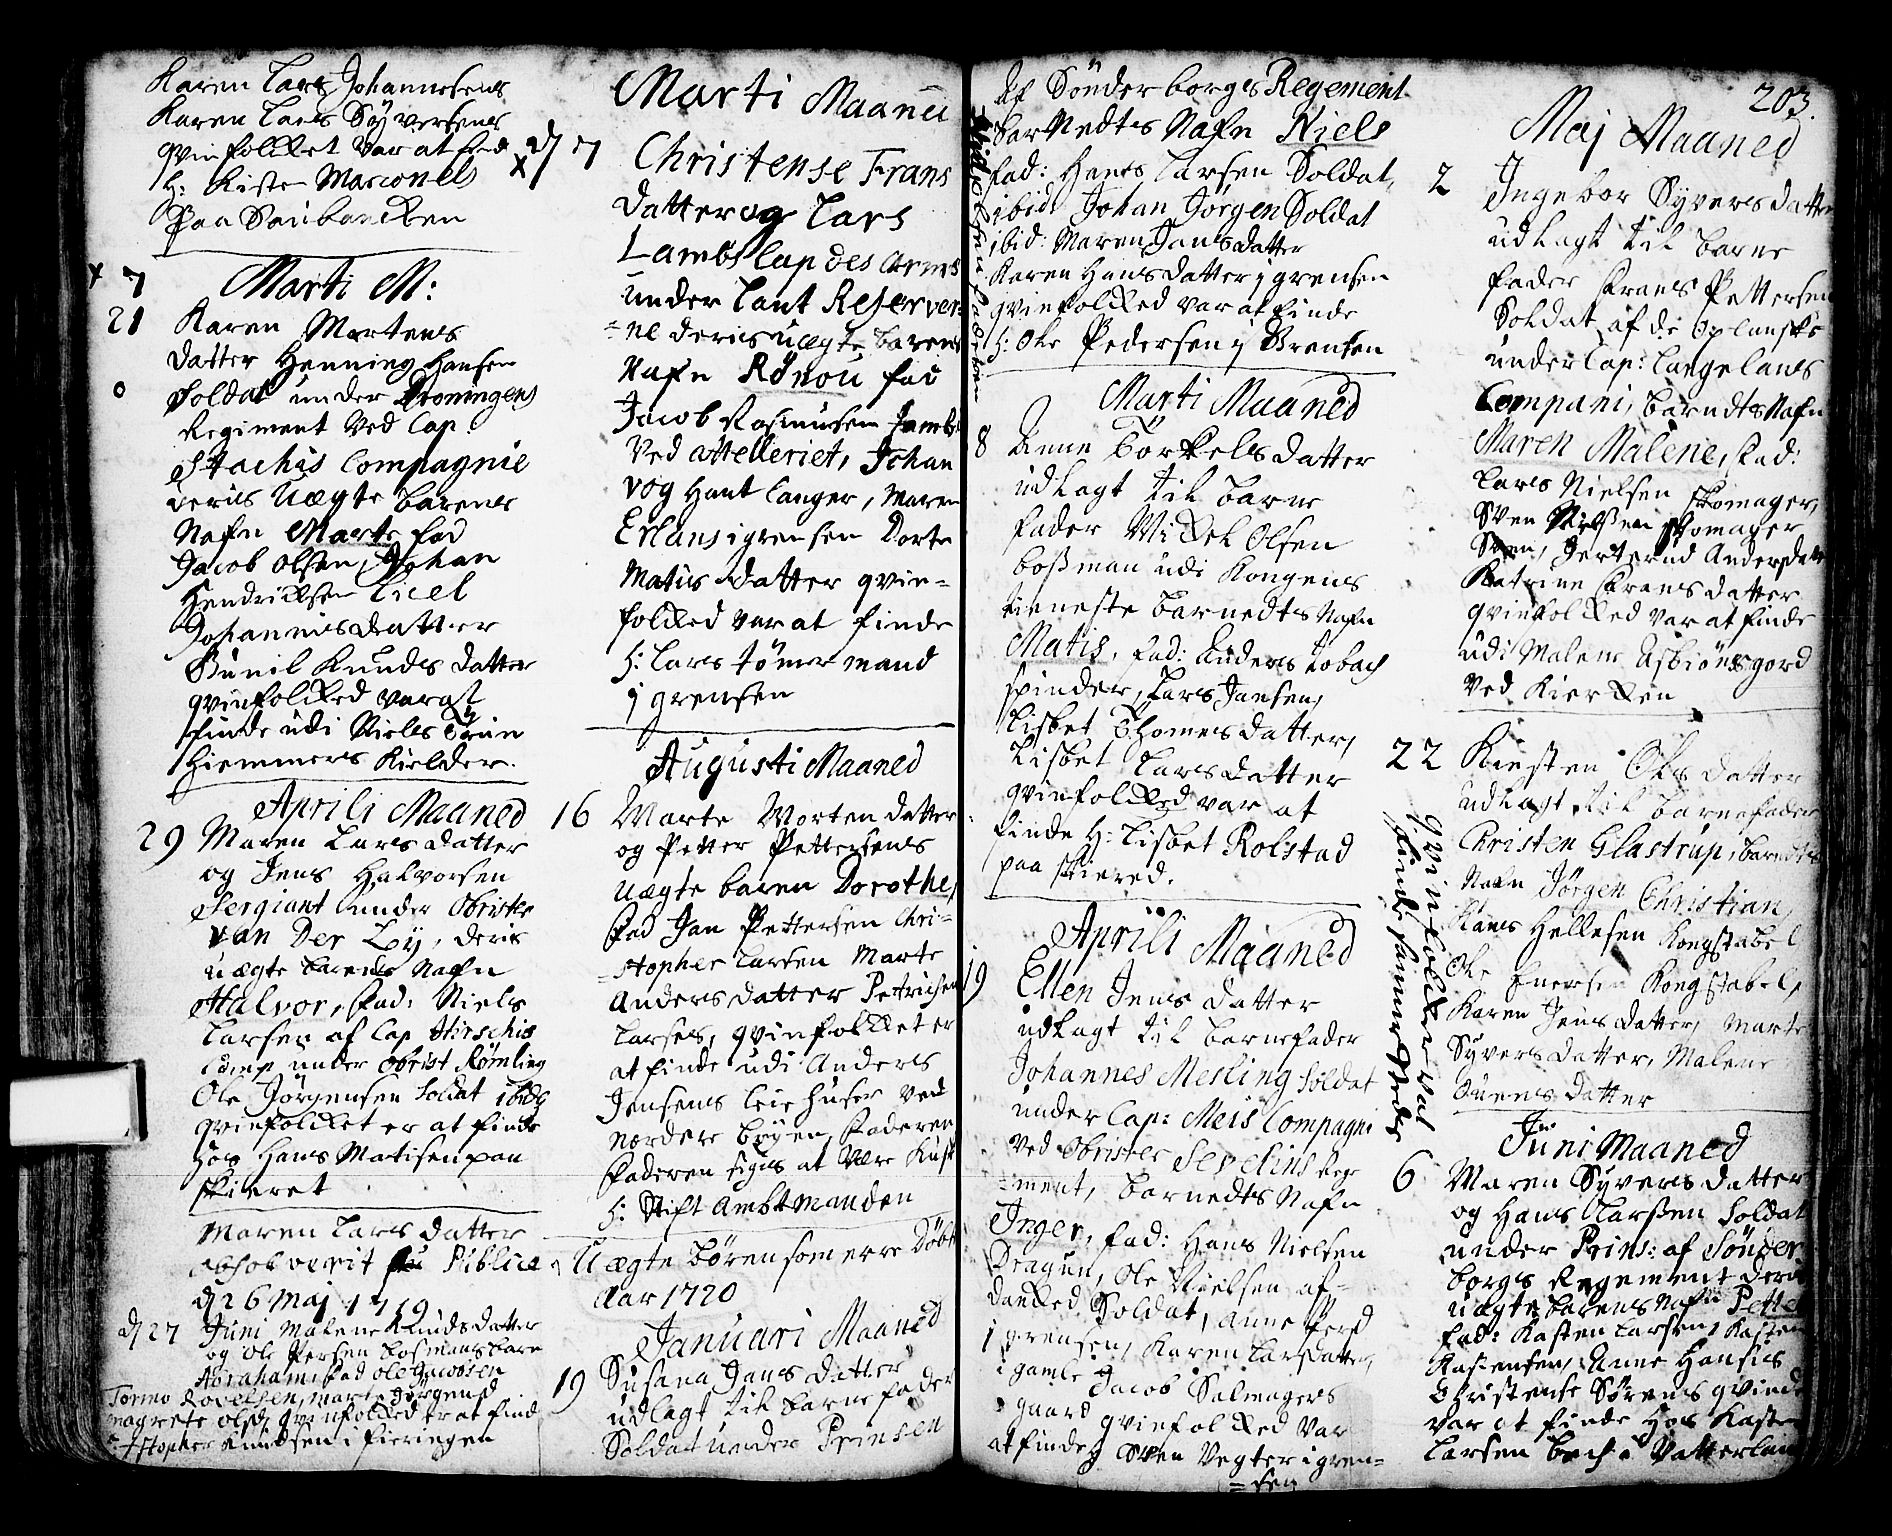 Karen Lars Johannesens
Karen Lars Syversens
qvinfolcket var at find
H: Kisten Marconells
Paa Saubancken
Marti M:
7
21 Karen Mortens
datter Henning Hansen
Soldat under Dronningens
Regiment ved Cap:
Stachis Compagnie
deris Uægte barens
Nafn Marte fad
Jacob Olsen, Johan
Hendricksen Lisel
Johannisdatter
Gunil Knuds datter
qvinfolcked var at
finde udi Niels
Hiemmers Kielder.
Aprili Maaned
29 Maren Lars datter
og Jens Halvorsen
Sergiant under Obrister
van Der Ley, deris
uægte barens Nafn
Halvor, Fad: Niels
Larsen af Cap Hirschis
Comp under Obrist Römling
Ole Jörgensen Soldat ibid
qvinfolcket er at finde
hos Hans Matisen paa
skieret
Maren Lars datter
absolverit Publice
d 26 Maj 1719
d 27 Juni Malene Knuds datter
og Ole Persen bosmans barn
Abraham Fad Ole Jacobsen
Tormo Roelsen, Marte Jörgensd
Magrete Olsd, qvinfolcked er at find
Christopher Knudsen i Pieringen
Marti Maanet
d 7 Christense Frans
datter og Lars
Lambs Cap des Armes
under Laut Reserver=
=ne deris uægte barens
Nafn Rönou fad
Jacob Rasmusen Lambs
ved attelleriet, Johan
vog Hant langer, Maren
Erlans i grensen Dorte
Matis datter qvin=
folcked var at finde
H: Lars tömermand
i grensen
Augusti Maaned
16 Marte Morten datter
og Petter Pettersens
uægte baren Dorothe,
Fad Jan Pettersen Chri=
=stopher Larsen Marte
Andersdatter Petrichen
Larses, qvinfolcket er
at finde udi Anders
Jensens leie huser ved
nordere byen, Faderen
Faderen siges at være Kusk
H: Stift Ambtmanden
Uægte bören som erre Döbt
Aar 1720
Januari Maaned
19 Susana Jans datter
udlagt til barnefader
Soldat under Prinsen
Af Sönderborgs Regement
barnedts Nafn Niels
fad: Hans Larsen Soldat,
ibid Johan Jörgen Soldat
ibid: Maren Jansdatter
Karen Hansdatter i grensen
qvinfolcked var at finde
H: Ole Pedersen i Grensen
Marti Maaned
8 Anne Torkels datter
udlagt til barne
fader Mickel Olsen
bosman udi Kongens
tieneste barnedts Nafn
Matis, Fad: Anders Tobach
spinder, Lars Jansen,
Lisbet Thomes datter,
Lisbet Larsdatter
qvinfolcked var at
finde H: Lisbet Rolstad
paa skiered.
Aprili Maaned
19 Ellen Jens datter
udlagt til barnefader
Johannes Mesling Soldat
under Cap: Meis Compagni
ved Obrister Sevelins Rege
=ment, barnedts Nafn
Inger, Fad: Hans Nielsen
Dragun, Ole Nielsen af=
dancked Soldat, Anne Persd
i grensen, Karen Larsdatter,
i gamle Jacob Salmagers
gaard qvinfolcked var
at finde Sven Vegter i gren=
=sen
203.
Maj Maaned
2 Ingebor Syversdatter
udlagt til barne
fader Frans Pettersen
Soldat af de Oplanske
under Cap: Langelans
Compani, barndts Nafn
Maren Malene, Fad:
Lars Nielsen skomager,
Sven Nielsen skomager
Sven, Jertrud Andersdatt
Katrine Fransdatter
qvinfolcked var at finde
udi Malene Asbiönsgord
ved Kiercken
22 Kiersten Ols datter
udlagt til barnefader
Christen Glastrup, barndts
Nafn Jörgen Christian,
Hans Hellesen Kongstabel
Ole Enersen Kongstabel,
Karen Jens datter, Marte
Syvers datter, Malene
Svens datter
qvinfolcked var at
finde samme steder
Juni Maaned
6 Maren Syvers datter
og Hans Larssen Soldat
under Prins: af Sönder
borgs Regement deris
uægte barens Nafn Petter
fad: Kasten Larsen, Kasten
Kastensen, Anne Hansis
Christense Sörens qvinde
var at finde hos Kasten
Larsen bech i Vatterlan